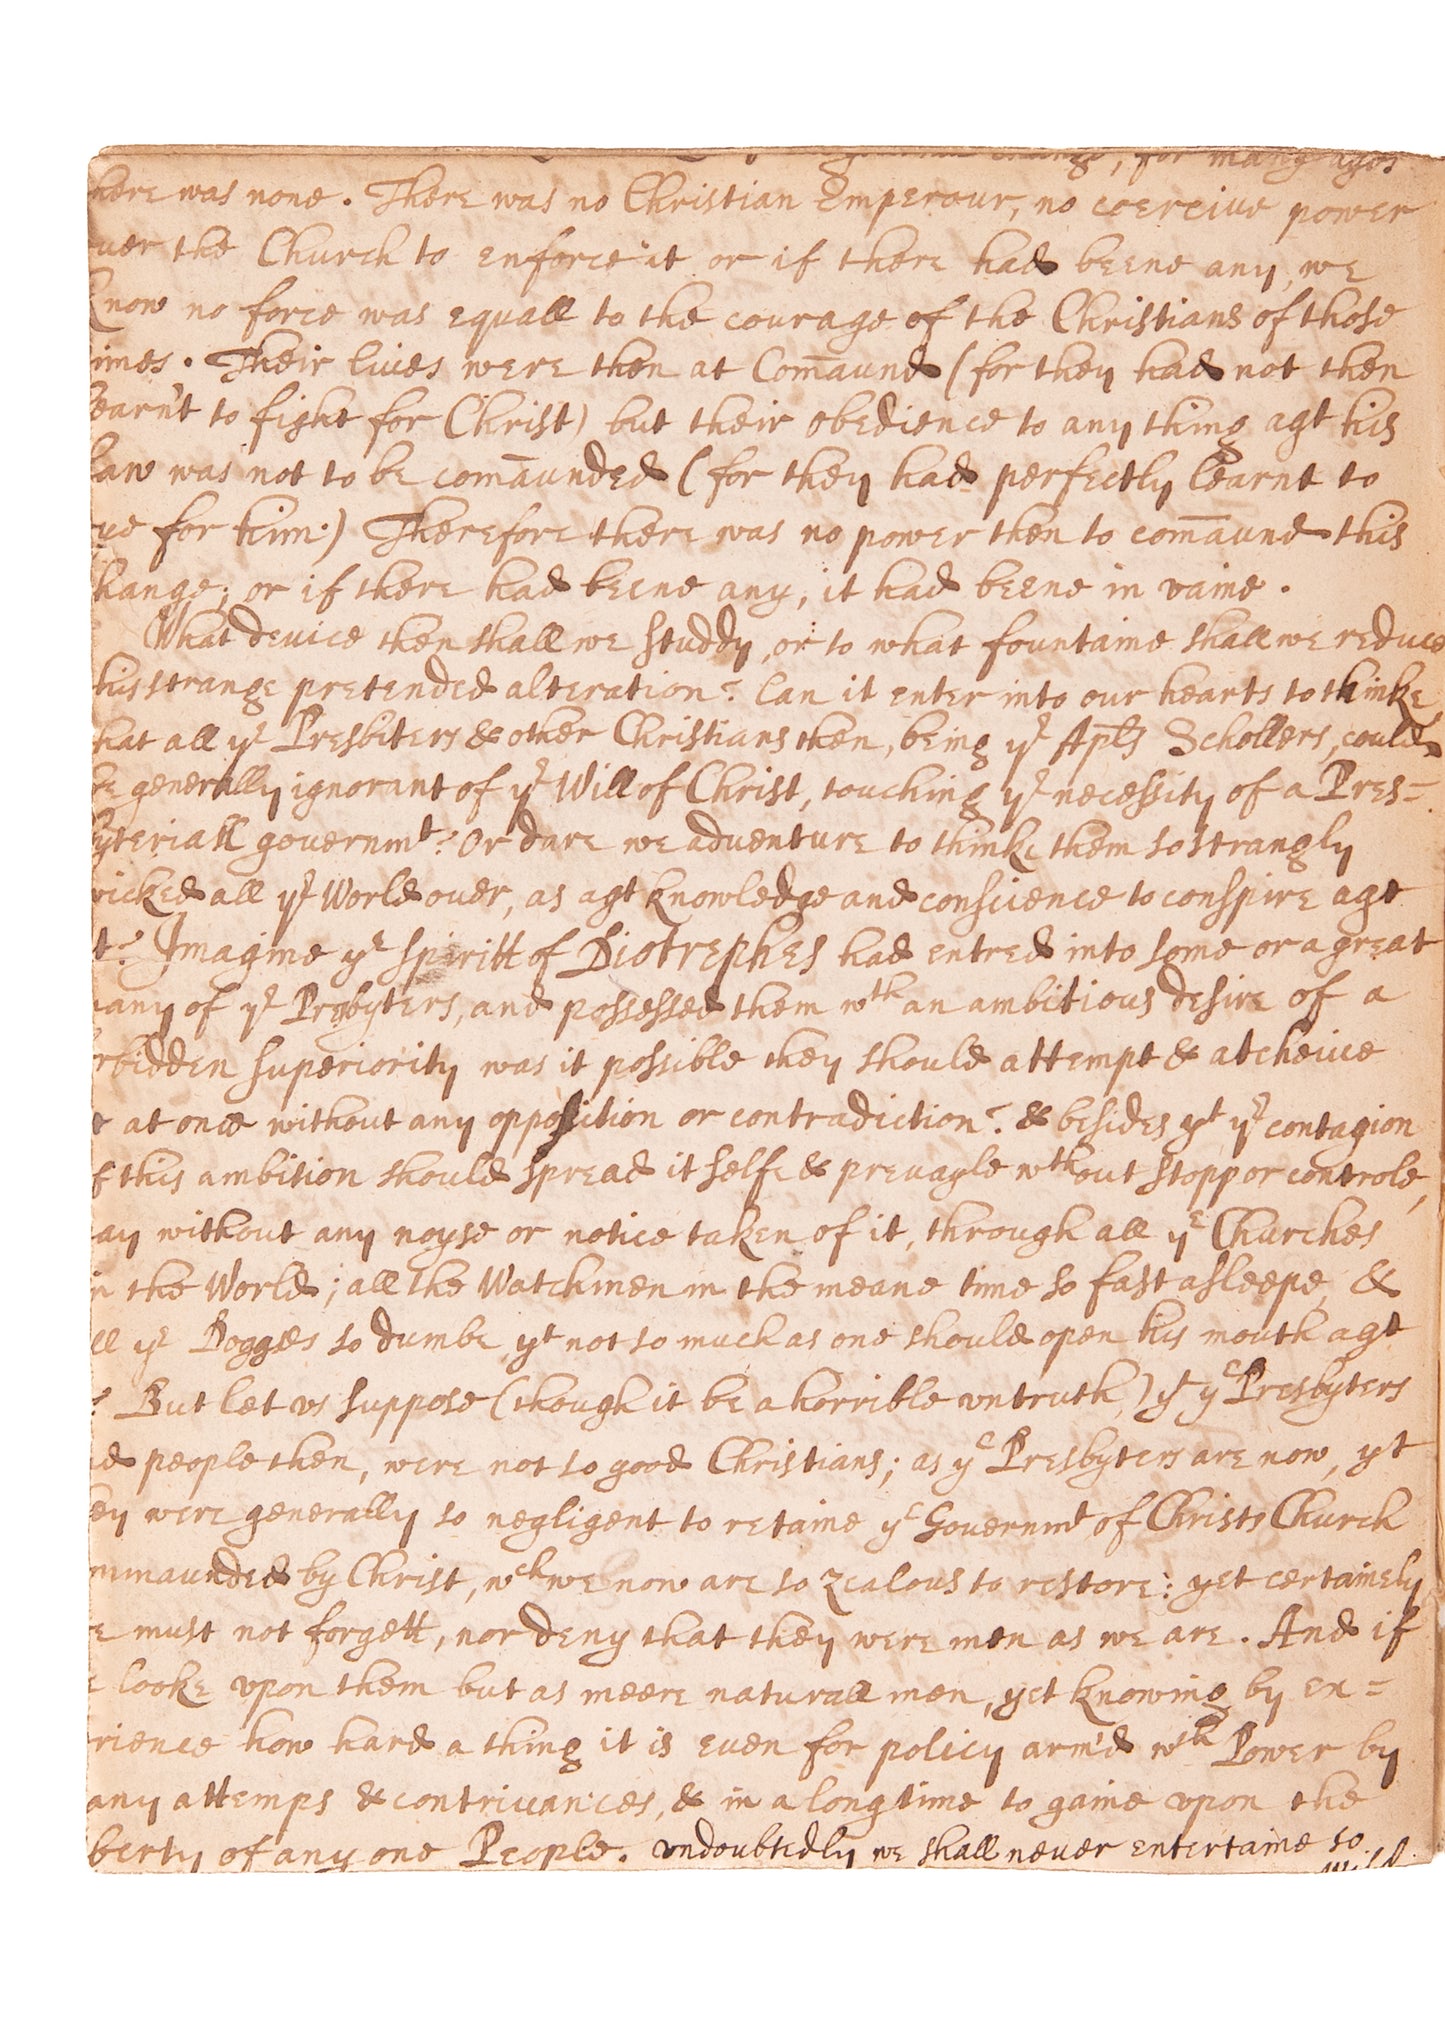 change, for many ages
here was none. There was no Christian Emperour, no coercive power
uer the Church to enforce it or if there had beene any, we
know no force was equall to the courage of the Christians of those
imes. Their lives were then at Com̄aund (for they had not then
learn't to fight for Christ) but their obedience to any thing agt his
Law was not to be com̄aunded (for they had perfectly learnt to
ue for him.) Therefore there was no power then to com̄aund this
hange; or if there had beene any, it had beene in vaine.
What device then shall we studdy, or to what fountaine shall we reduce
this strange pretended alteration? Can it enter into our hearts to thinke,
hat all yᵉ Presbiters & other Christians then, being yᵉ Apᵗˡs Schollers, could
be generally ignorant of yᵉ Will of Christ, touching yᵉ necessity of a Pres=
yteriall governmᵗ? Or dare we adventure to thinke them so strangly
wicked all yᵉ World over, as agt knowledge and conscience to conspire agt
t? Imagine yᵉ spiritt of Diotrephes had entred into some or a great
any of yᵉ Presbyters, and possessed them wᵗʰ an ambitious desire of a
rbidden superiority was it possible they should attempt & atcheive
t at once without any opposiction or contradiction? & besides yᵗ yᵉ contagion
f this ambition should spread it selfe & prevayle wᵗʰout stopp or controle,
ay without any noyse or notice taken of it, through all yᵉ Churches
in the World; all the Watchmen in the meane time so fast asleepe, &
ll yᵉ Dogges so dumbe yᵗ not so much as one should open his mouth agt
? But let vs suppose (though it be a horrible vntruth,) yᵗ yᵉ Presbyters
d people then, were not so good Christians; as yᵉ Presbyters are now, yᵗ
ey were generally so negligent to retaine yᵉ Governmᵗ of Christs Church
mmaunded by Christ, wᶜʰ we now are so zealous to restore: yet certainely
e must not forgett, nor deny that they were men as we are. And if
e looke vpon them but as meere naturall men, yet knowing by ex=
rience how hard a thing it is even for policy arm'd wᵗʰ Power by
any attemps & contrivances, & in a long time to gaine vpon the
berty of any one People. vndoubtedly we shall never entertaine so